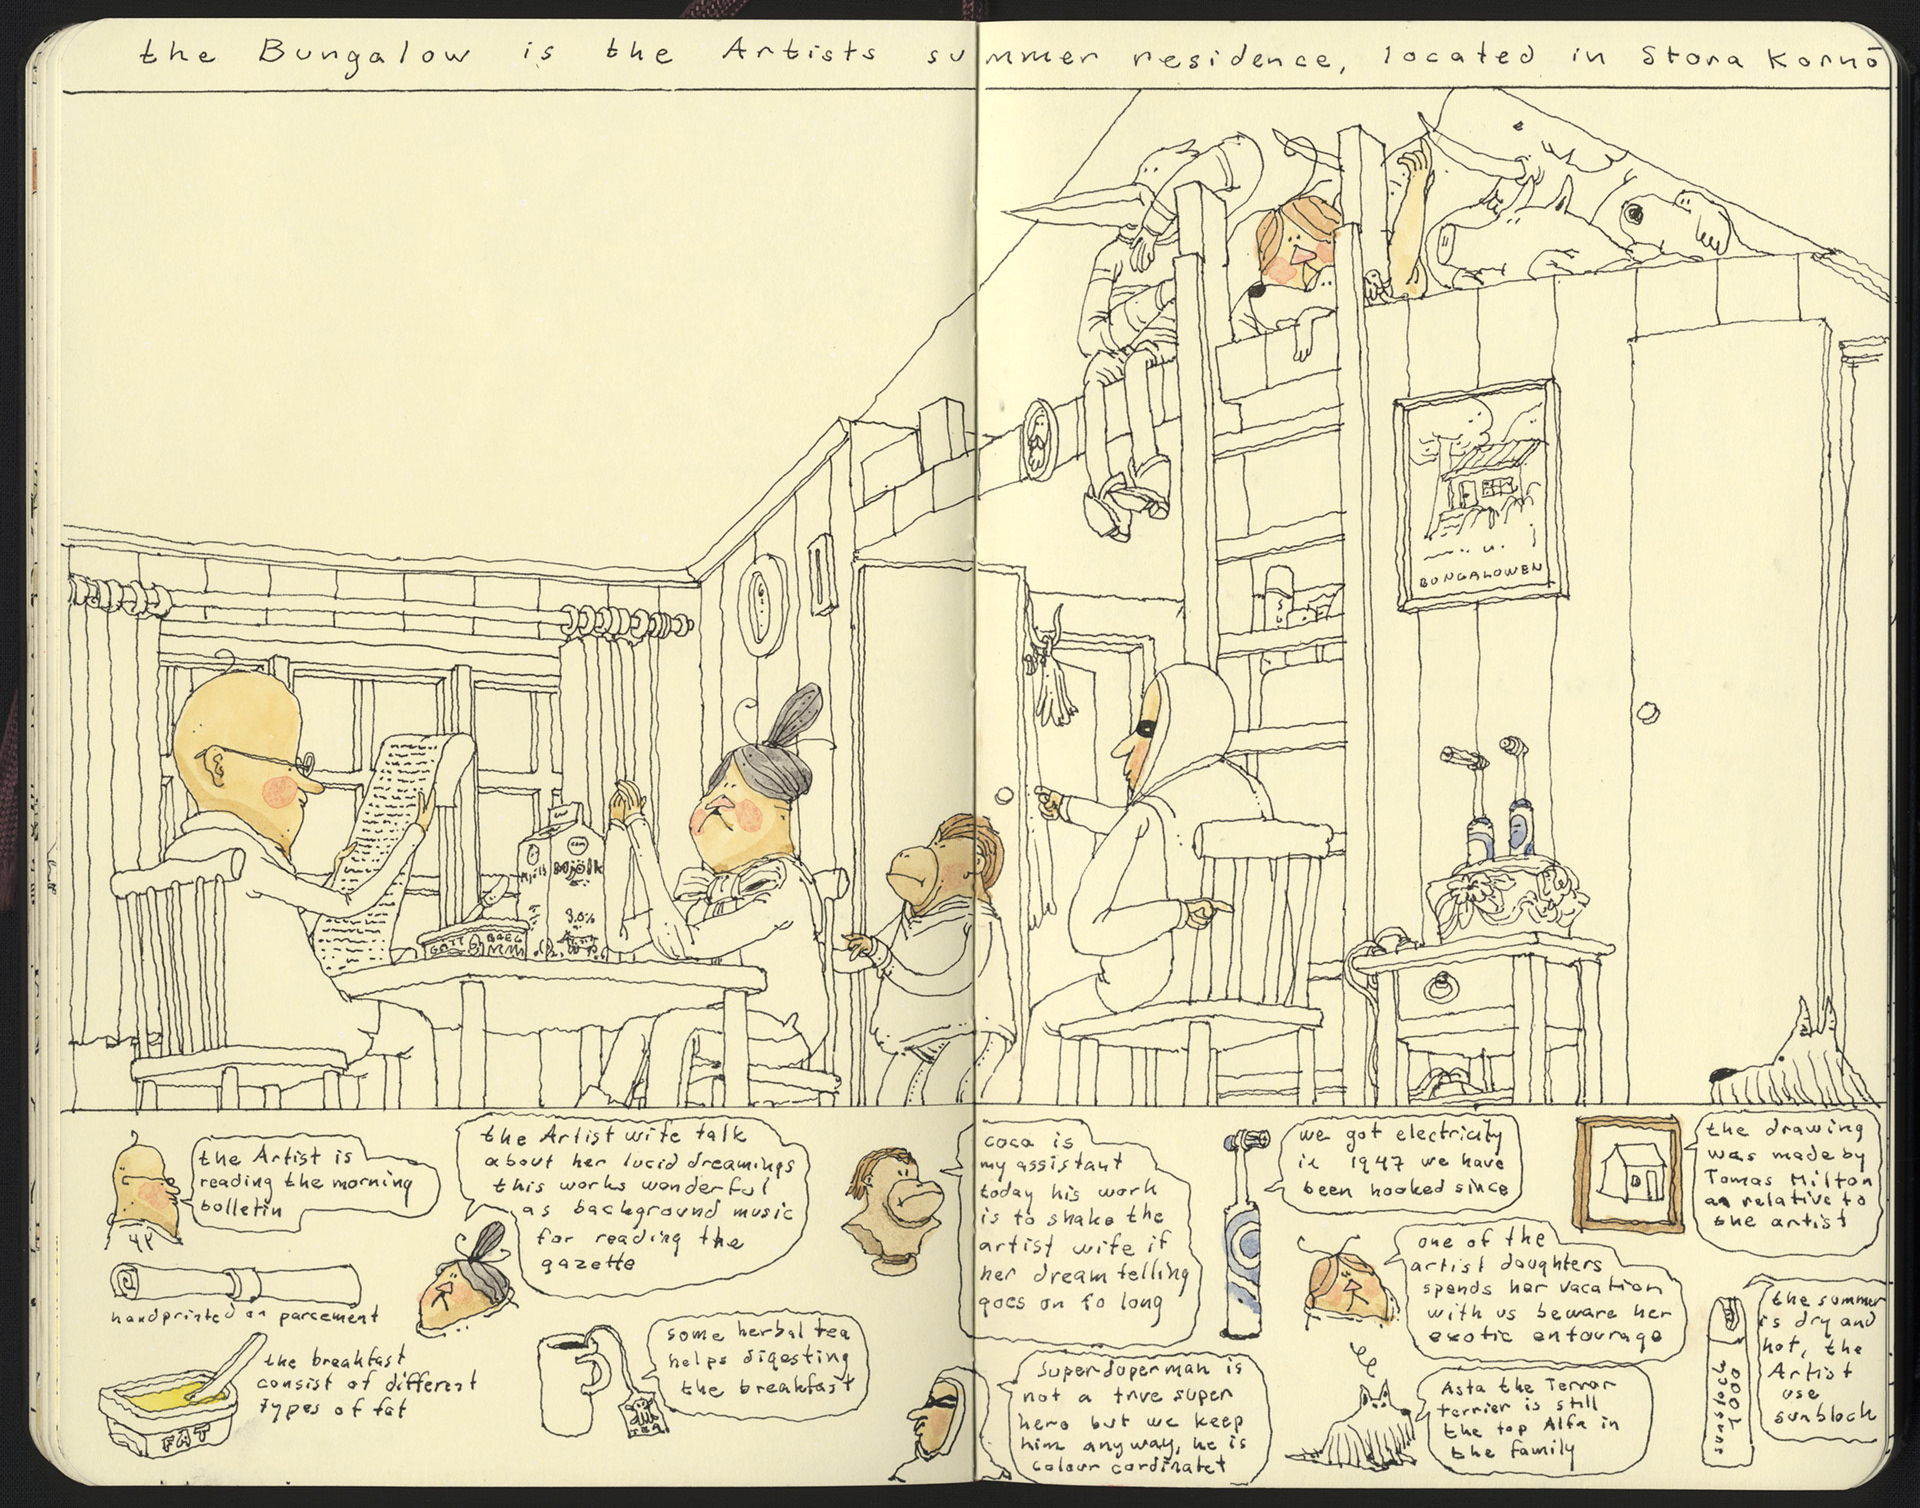 the Bungalow is the Artists summer residence, located in Stora Kornö
BUNGALOWEN
Mjölk
Mjölk
3,0%
GOTT
the Artist is
reading the morning
bolletin
handprinted on parcement
the breakfast
consist of different
types of fat
FAT
the Artist wife talk
about her lucid dreamings
this works wonderful
as background music
for reading the
gazette
some herbal tea
helps digesting
the breakfast
TEA
coco is
my assistant
today his work
is to shake the
artist wife if
her dream telling
goes on to long
Superduperman is
not a true super
hero but we keep
him anyway, he is
colour cordinatet
we got electricity
in 1947 we have
been hooked since
one of the
artist daughters
spends her vacation
with us beware her
exotic entourage
Asta the Terror
terrier is still
the top Alfa in
the family
the drawing
was made by
Tomas Milton
an relative to
the artist
the summer
is dry and
hot, the
Artist
use
sunblock
sunblock
7000